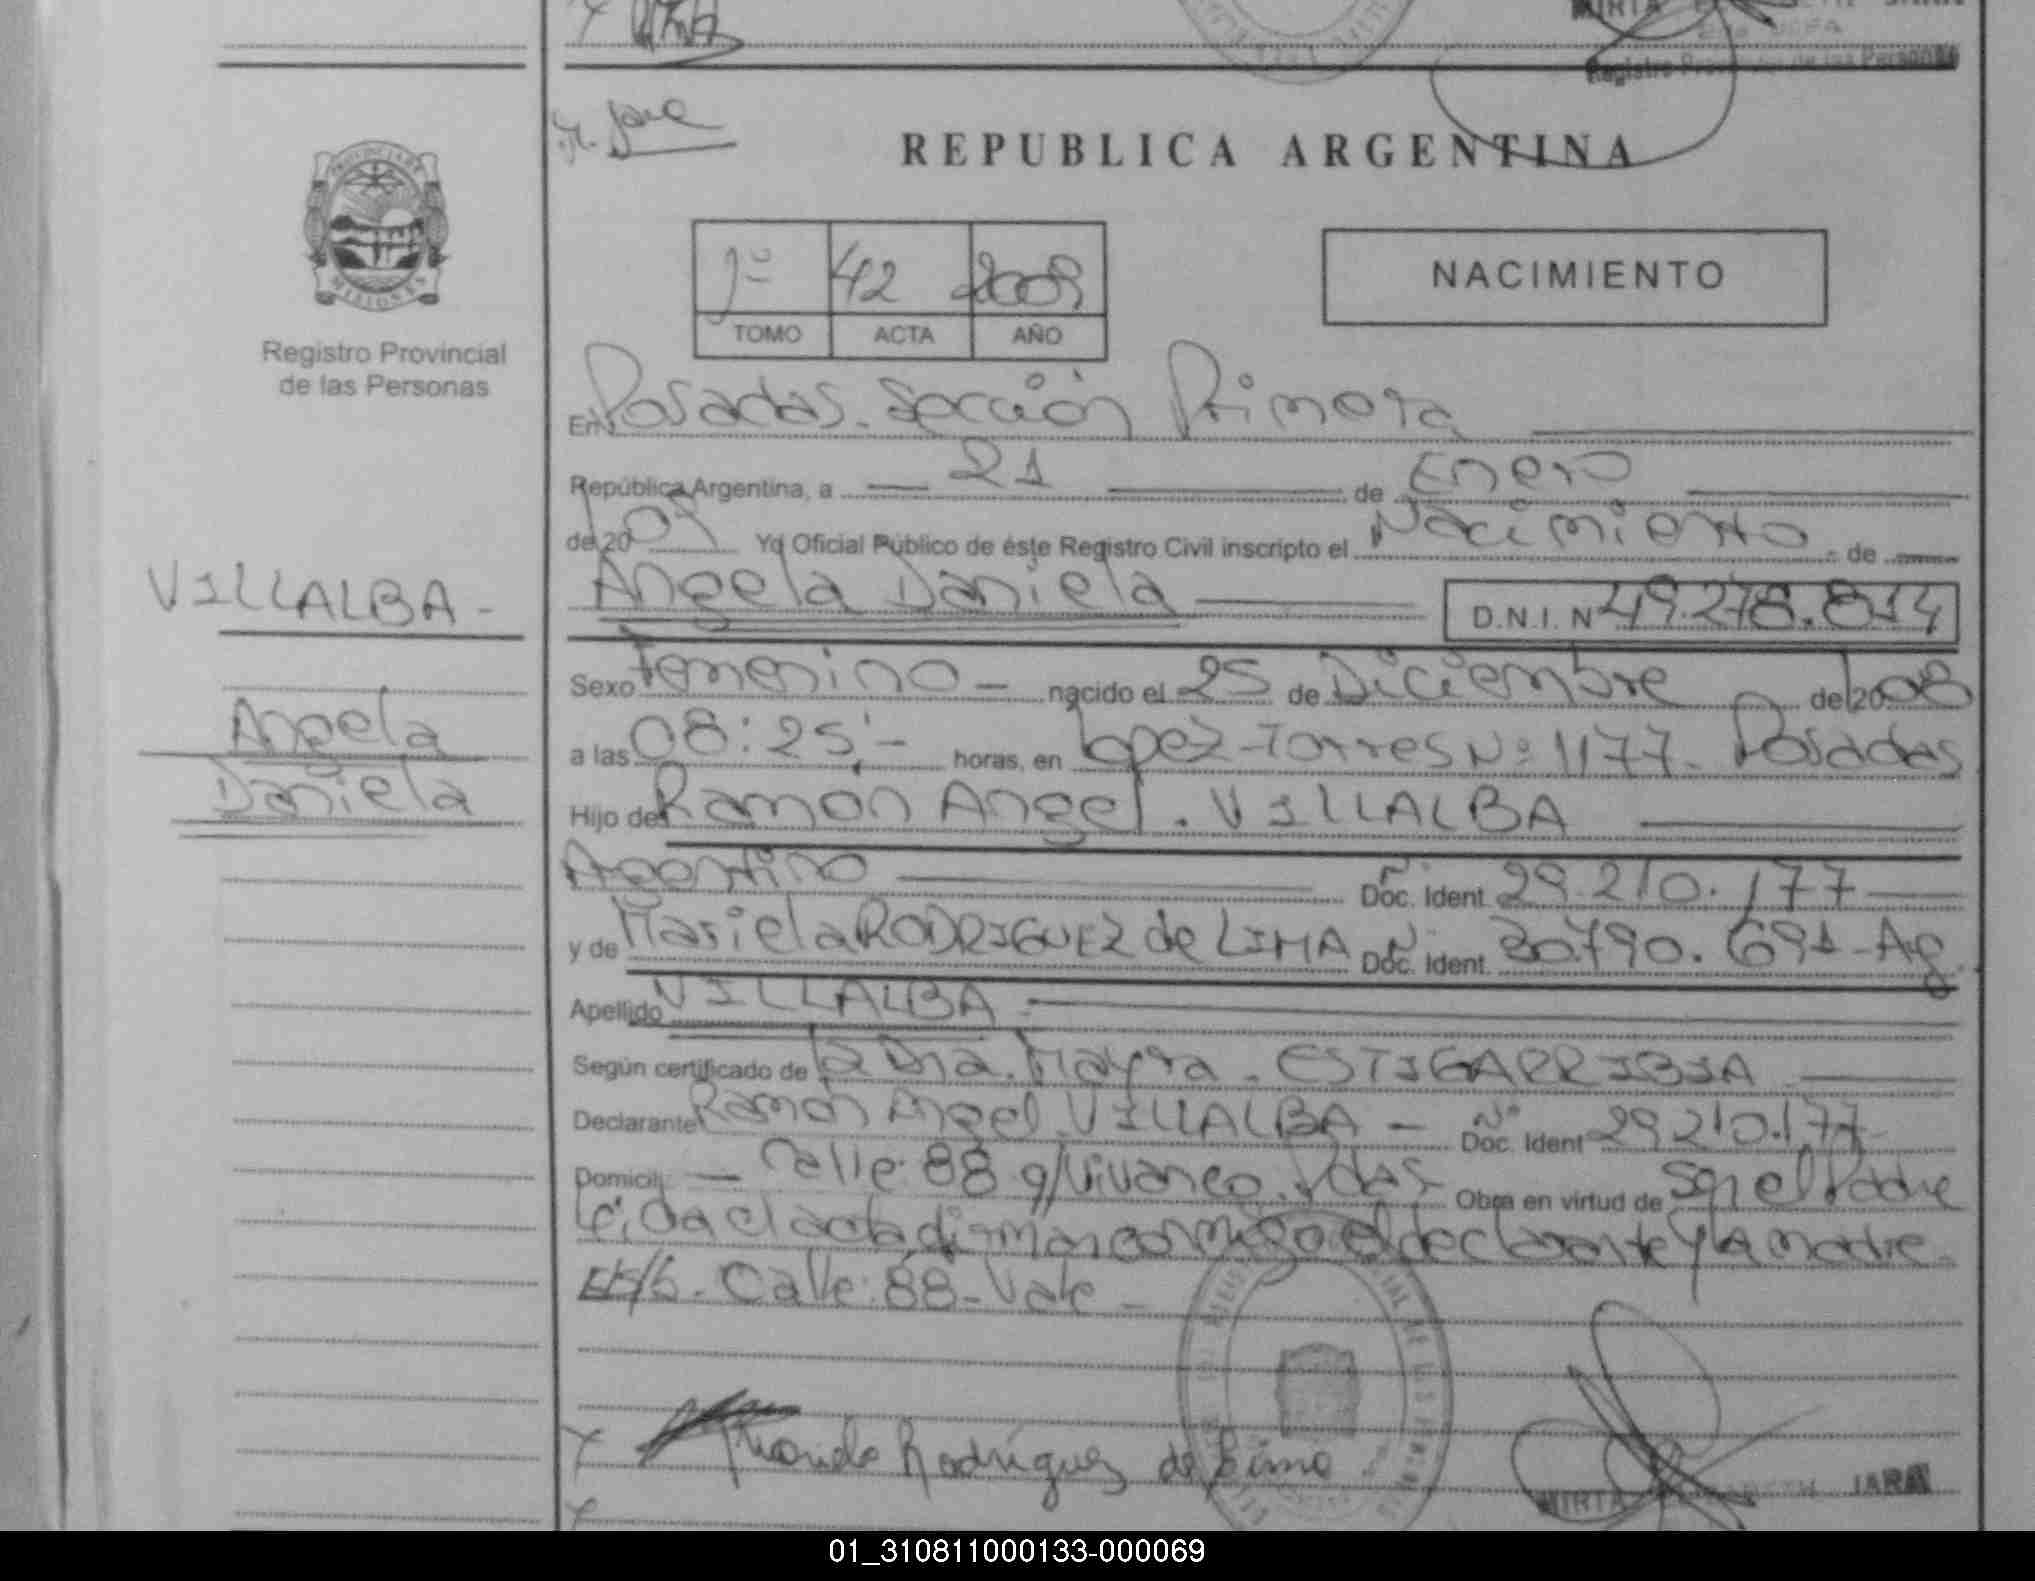 REPUBLICA ARGENTINA
PROVINCIA DE
MISIONES
Registro Provincial
de las Personas
1º 42 2009
TOMO ACTA AÑO
NACIMIENTO
En Posadas. Sección Primera
República Argentina, a 21 de Enero
de 2009 Yo Oficial Público de éste Registro Civil inscripto el Nacimiento - de
Angela Daniela D.N.I. Nº 49.278.814
VILLALBA -
Angela
Daniela
Sexo Femenino - nacido el 25 de Diciembre de 2008
a las 08:25 - horas, en Lopez Torres Nº 1177 - Posadas
Hijo de Ramon Angel. VILLALBA
Argentino Doc. Ident. Nº 29.210.177
y de Mariela RODRIGUEZ de LIMA Doc. Ident. Nº 30.790.691 - Ag.
Apellido VILLALBA -
Según certificado de la Dra. Mayra - ESTIGARRIBIA
Declarante Ramon Angel VILLALBA - Doc. Ident Nº 29.210.177
Domicilio - Calle: 88 Vivanco. Pdas - Obra en virtud de ser el Padre
Leída el acta firman conmigo el declarante y la madre
Calle: 88 - Vale -
Mariela Rodríguez de Lima
MIRTA JARA
01_310811000133-000069